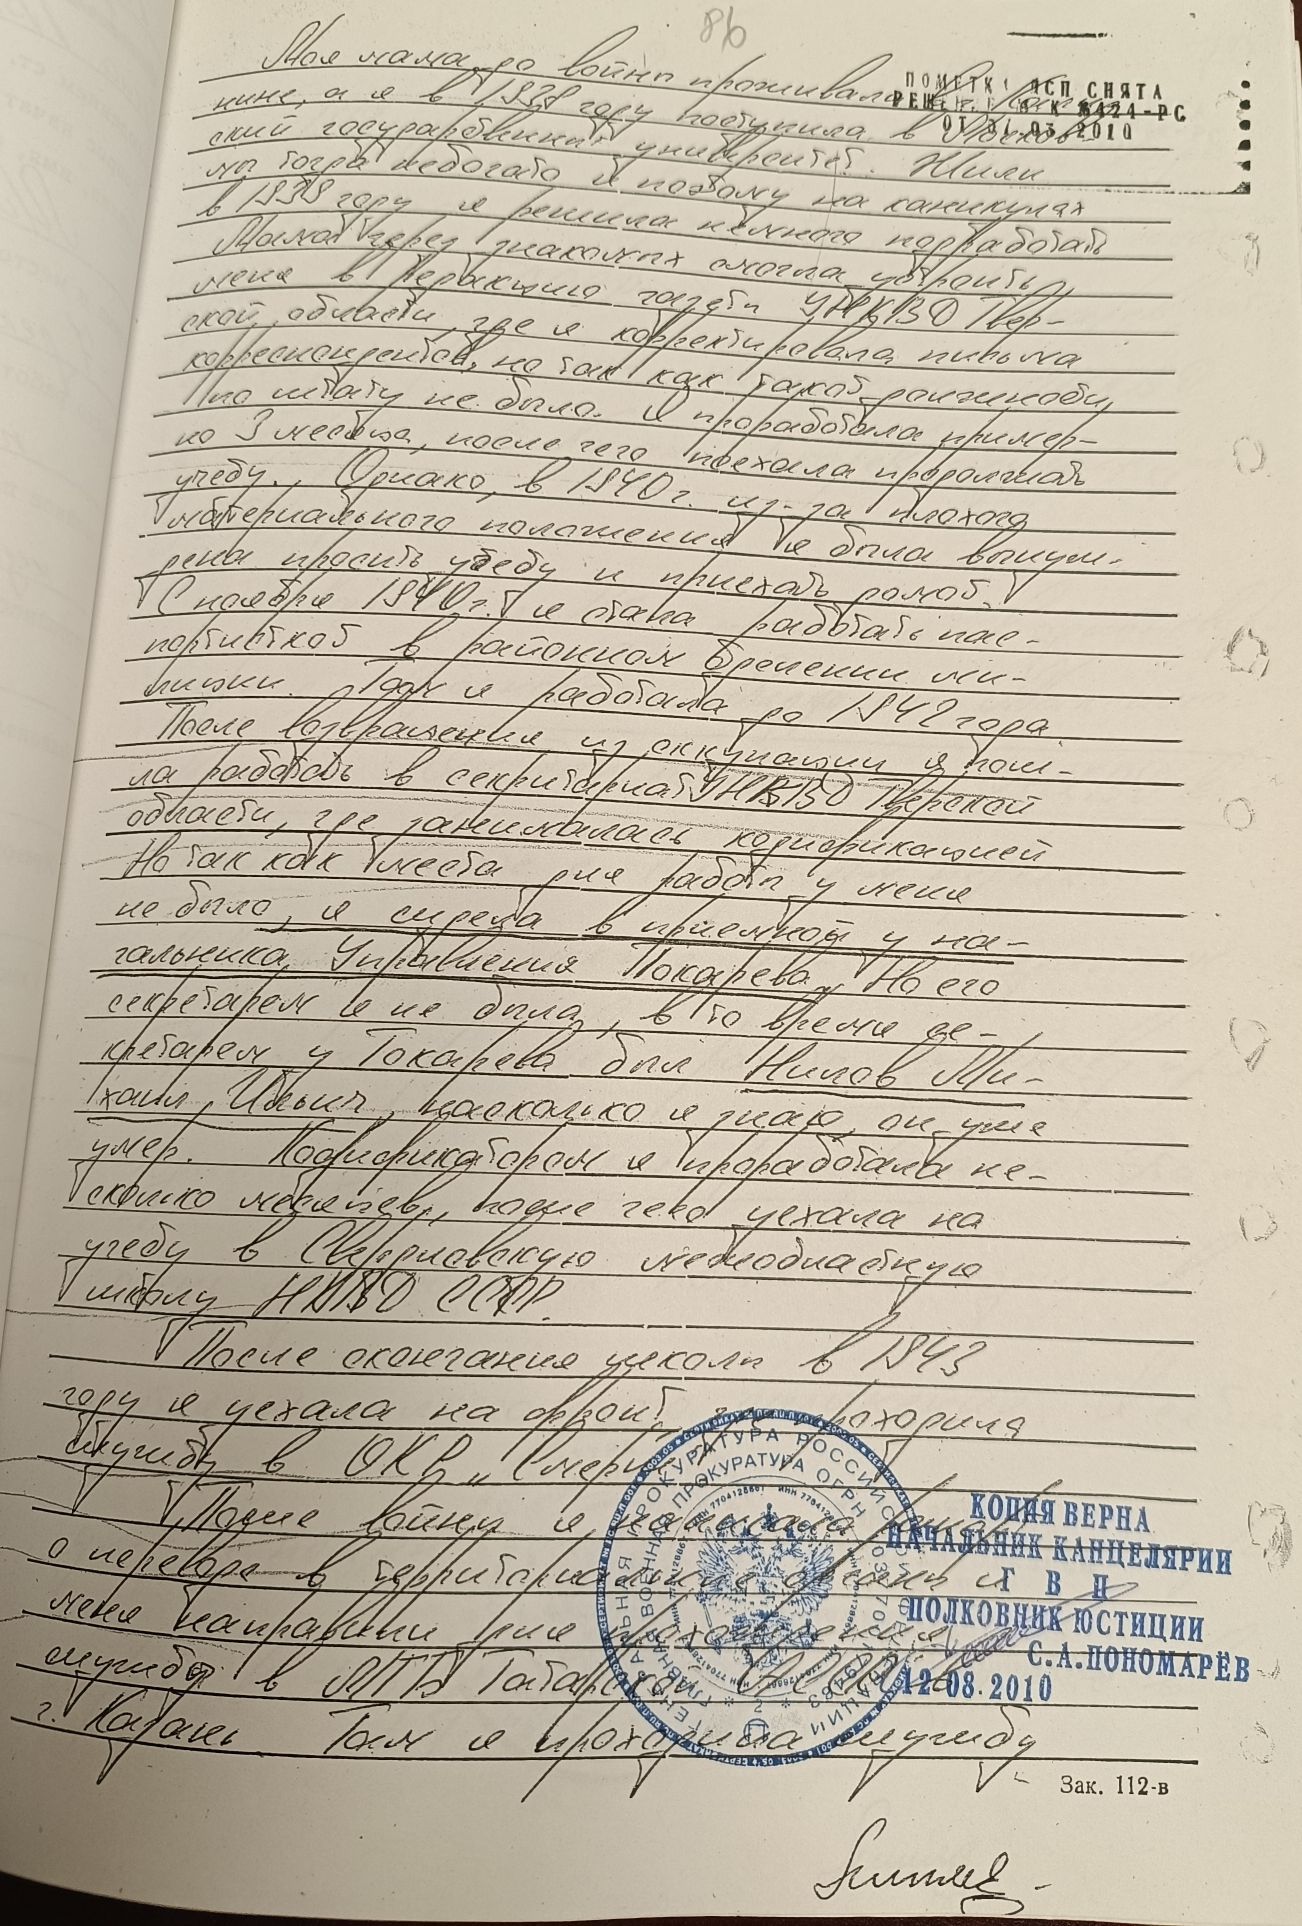 86
ПОМЕТКА ДСП СНЯТА
РЕШЕНИЕ К 8424-РС
ОТ 31.03.2010
Моя мама до войны проживала в
нине, а я в 1938 году поступила в Москов-
ский государственный университет. Жили
мы тогда небогато и поэтому на каникулах
в 1939 году я решила немного подработать
Мама через знакомых смогла устроить
меня в редакцию газеты УНКВД Твер-
ской области, где я корректировала письма
корреспондентов, но так как такой должности
по штату не было. Я проработала пример-
но 3 месяца, после чего поехала продолжать
учебу. Однако, в 1940 г. из-за плохого
материального положения я была вынуж-
дена бросить учебу и приехать домой.
С ноября 1940 г. я стала работать пас-
портисткой в районном отделении ми-
лиции. Там я работала до 1942 года
После возвращения из оккупации я пош-
ла работать в секретариат УНКВД Тверской
области, где занималась кодификацией
Но так как места для работы у меня
не было, я сидела в приемной у на-
чальника Управления Токарева. Но его
секретарем я не была, в то время се-
кретарем у Токарева был Нилов Ми-
хаил Ильич, насколько я знаю, он уже
умер. Кодификатором я проработала не-
сколько месяцев, после чего уехала на
учебу в Свердловскую межобластную
школу НКВД СССР.
После окончания школы в 1943
году я уехала на фронт, где проходила
службу в ОКР „Смерш"
После войны я написала
о переводе в территориальные органы и
меня направили для прохождения
службы в МГБ Татарской АССР в
г. Казань. Там я проходила службу
КОПИЯ ВЕРНА
НАЧАЛЬНИК КАНЦЕЛЯРИИ
Г В П
ПОЛКОВНИК ЮСТИЦИИ
С.А.ПОНОМАРЁВ
12.08.2010
ГЕНЕРАЛЬНАЯ ПРОКУРАТУРА РОССИЙСКОЙ ФЕДЕРАЦИИ
ГЛАВНАЯ ВОЕННАЯ ПРОКУРАТУРА ОГРН
Зак. 112-в